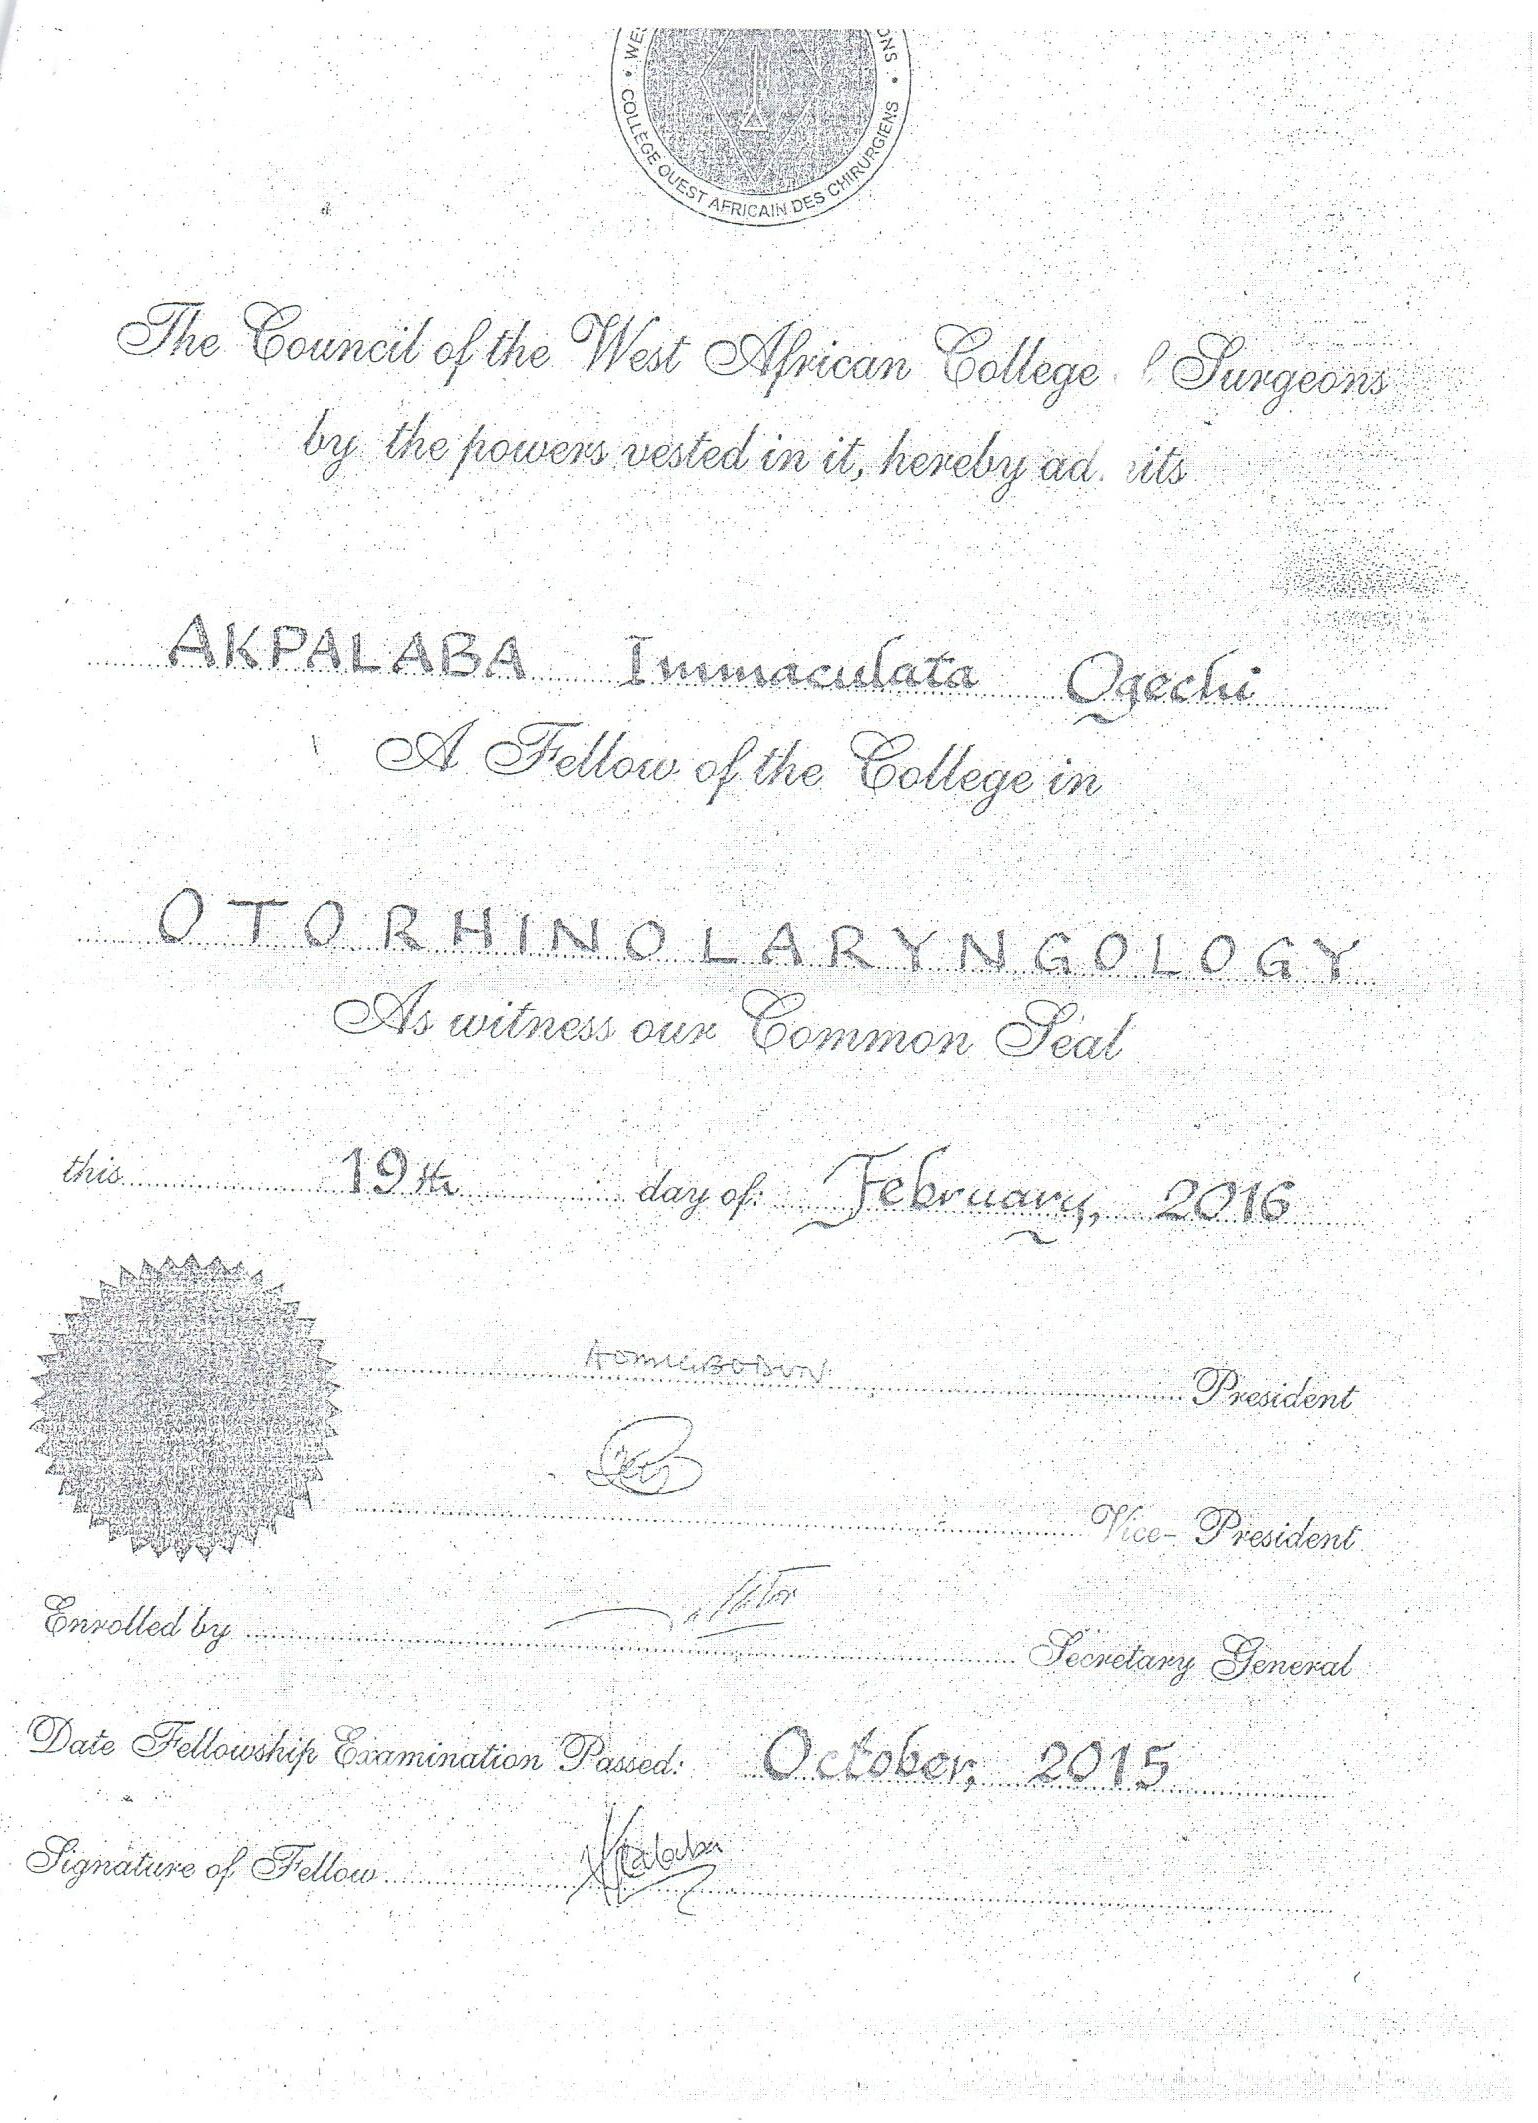 WES ONS
COLLÈGE OUEST AFRICAIN DES CHIRURGIENS
The Council of the West African College Surgeons
by the powers vested in it, hereby ad its
AKPALABA Immaculata Ogechi
A Fellow of the College in
OTORHINOLARYNGOLOGY
As witness our Common Seal
this 19th day of: February, 2016
President
Vice- President
Enrolled by Secretary General
Date Fellowship Examination Passed: October, 2015
Signature of Fellow